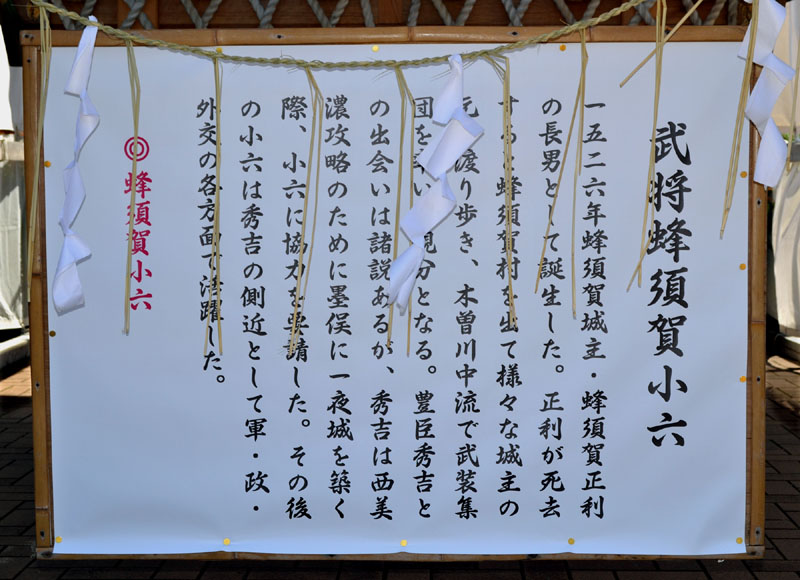 武将蜂須賀小六
一五二六年蜂須賀城主・蜂須賀正利
の長男として誕生した。正利が死去
すると蜂須賀村を出て様々な城主の
元 渡り歩き、木曽川中流で武装集
団を い 親分となる。豊臣秀吉と
の出会いは諸説あるが、秀吉は西美
濃攻略のために墨俣に一夜城を築く
際、小六に協力を要請した。その後
の小六は秀吉の側近として軍・政・
外交の各方面で活躍した。
◎蜂須賀小六